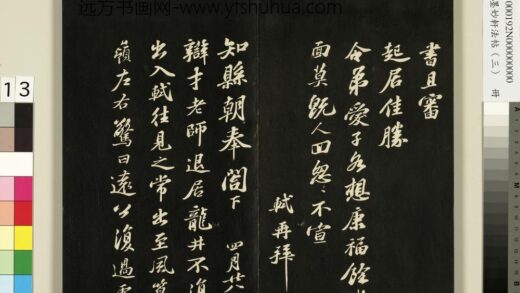 远方书画网- www.ytshuhua.com
書且審
起居佳勝
令弟愛子各想康福餘
面莫既人回怱〻不宣
軾再拜
知縣朝奉閤下 四月廿
辯才老師退居龍井不復
出入軾往見之常出至風篁
嶺左右驚曰遠公復過
000192N000000000
墨妙軒法帖(三) 冊
13